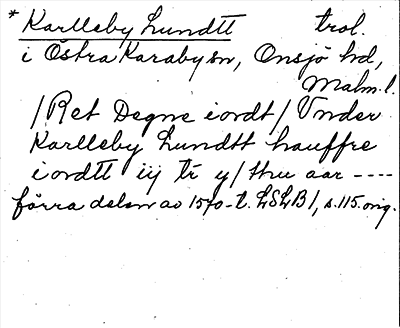 * Karlleby Lundtt trol.
i Östra Karaby sn, Onsjö hd,
Malm.l.
/Ret Degne iordt/ Vnder
Karlleby Lundtt hauffre
iordtt iij tr y/ thu aar ----
förra delen av 1570-t. LSLB1, s.115. orig.